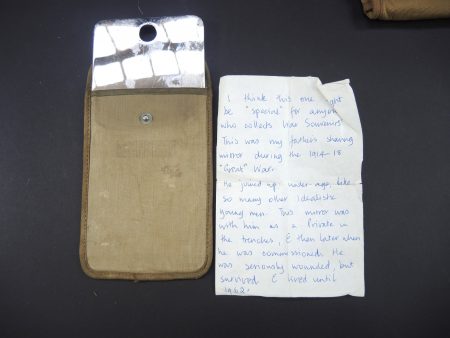 I think this one might
be "special" for anyone
who collects War Souvenirs
This was my father's shaving
mirror during the 1914-18
"Great" War.
He joined up under-age, like
so many other idealistic
young men. This mirror was
with him as a Private in
the trenches, & then later when
he was commissioned. He
was seriously wounded, but
survived & lived until
1962.